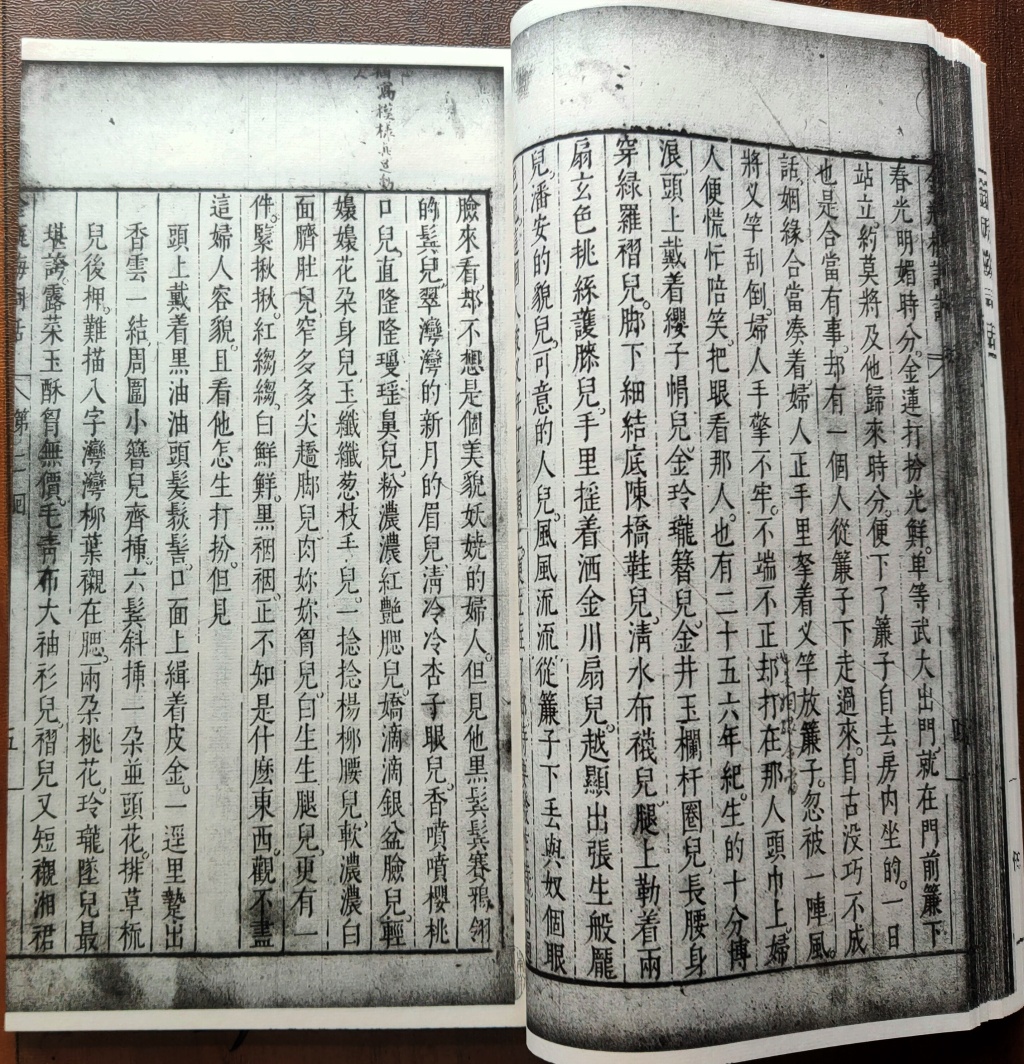 春光明媚時分。金蓮打扮光鮮。单等武大出門。就在門前簾下
站立。約莫將及他歸來時分。便下了簾子。自去房內坐的。一日
也是合當有事。却有一個人從簾子下走過來。自古没巧不成
話。姻緣合當湊着。婦人正手里拏着义竿放簾子。忽被一陣風
將义竿刮倒。婦人手擎不牢。不端不正却打在那人頭巾上。婦
人便慌忙陪笑。把眼看那人。也有二十五六年紀。生的十分博
浪。頭上戴着纓子帽兒。金玲瓏簪兒。金井玉欄杆圈兒。長腰身
穿緑羅褶兒。脚下細結底陳橋鞋兒。清水布襪兒。腿上勒着兩
扇玄色桃絲護膝兒。手里摇着洒金川扇兒。越顯出張生般龎
兒。潘安的貌兒。可意的人兒。風風流流從簾子下丢與奴個眼
臉來看。却不想是個美貌妖嬈的婦人。但見他黑鬒鬒賽鴉翎
的鬂兒。翠灣灣的新月的眉兒。清冷冷杏子眼兒。香噴噴櫻桃
口兒。直隆隆瓊瑶鼻兒。粉濃濃紅艷腮兒。嬌滴滴銀盆臉兒。輕
嬝嬝花朶身兒。玉纖纖葱枝手兒。一捻捻楊柳腰兒。軟濃濃白
面臍肚兒。窄多多尖趫脚兒。肉妳妳胷兒。白生生腿兒。更有一
件。緊揪揪。紅縐縐。白鮮鮮。黑裀裀。正不知是什麽東西。觀不盡
這婦人容貌。且看他怎生打扮。但見
頭上戴着黑油油頭髮䯼髻。口面上緝着皮金。一逕里蟄出
香雲一結。周圍小簪兒齊揷。六鬂斜揷一朶並頭花。排草梳
兒後押。難描八字灣灣柳葉。襯在腮。兩朶桃花。玲瓏墜兒最
堪誇。露菜玉酥胷無價。毛青布大袖衫兒。褶兒又短襯湘裙